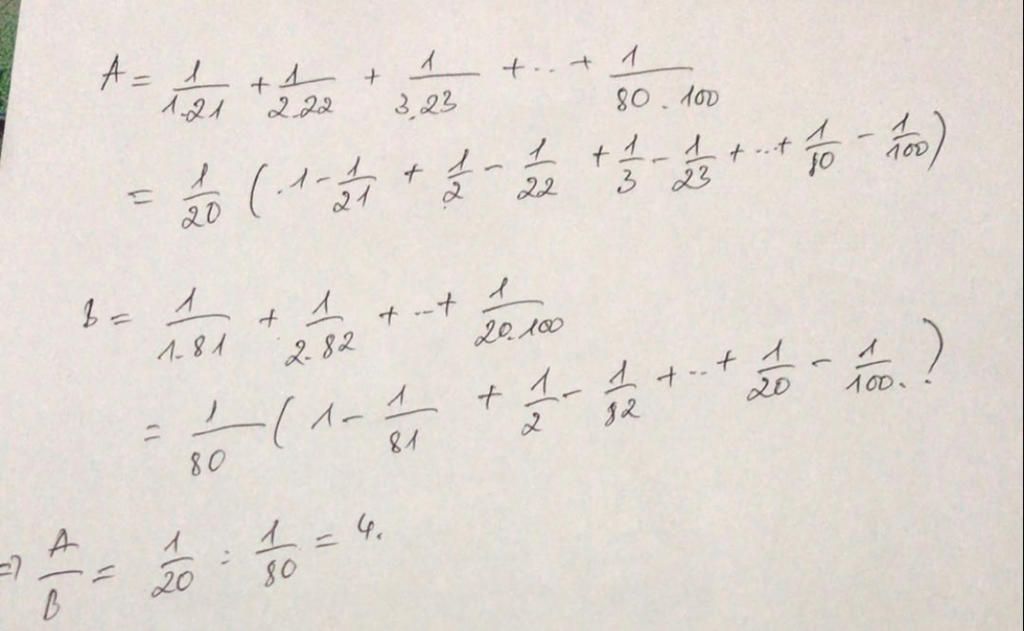 A = 1/1.21 + 1/2.22 + 1/3.23 + ... + 1/80.100
= 1/20 (1 - 1/21 + 1/2 - 1/22 + 1/3 - 1/23 + ... + 1/80 - 1/100)
B = 1/1.81 + 1/2.82 + ... + 1/20.100
= 1/80 (1 - 1/81 + 1/2 - 1/82 + ... + 1/20 - 1/100.)
=> A/B = 1/20 : 1/80 = 4.